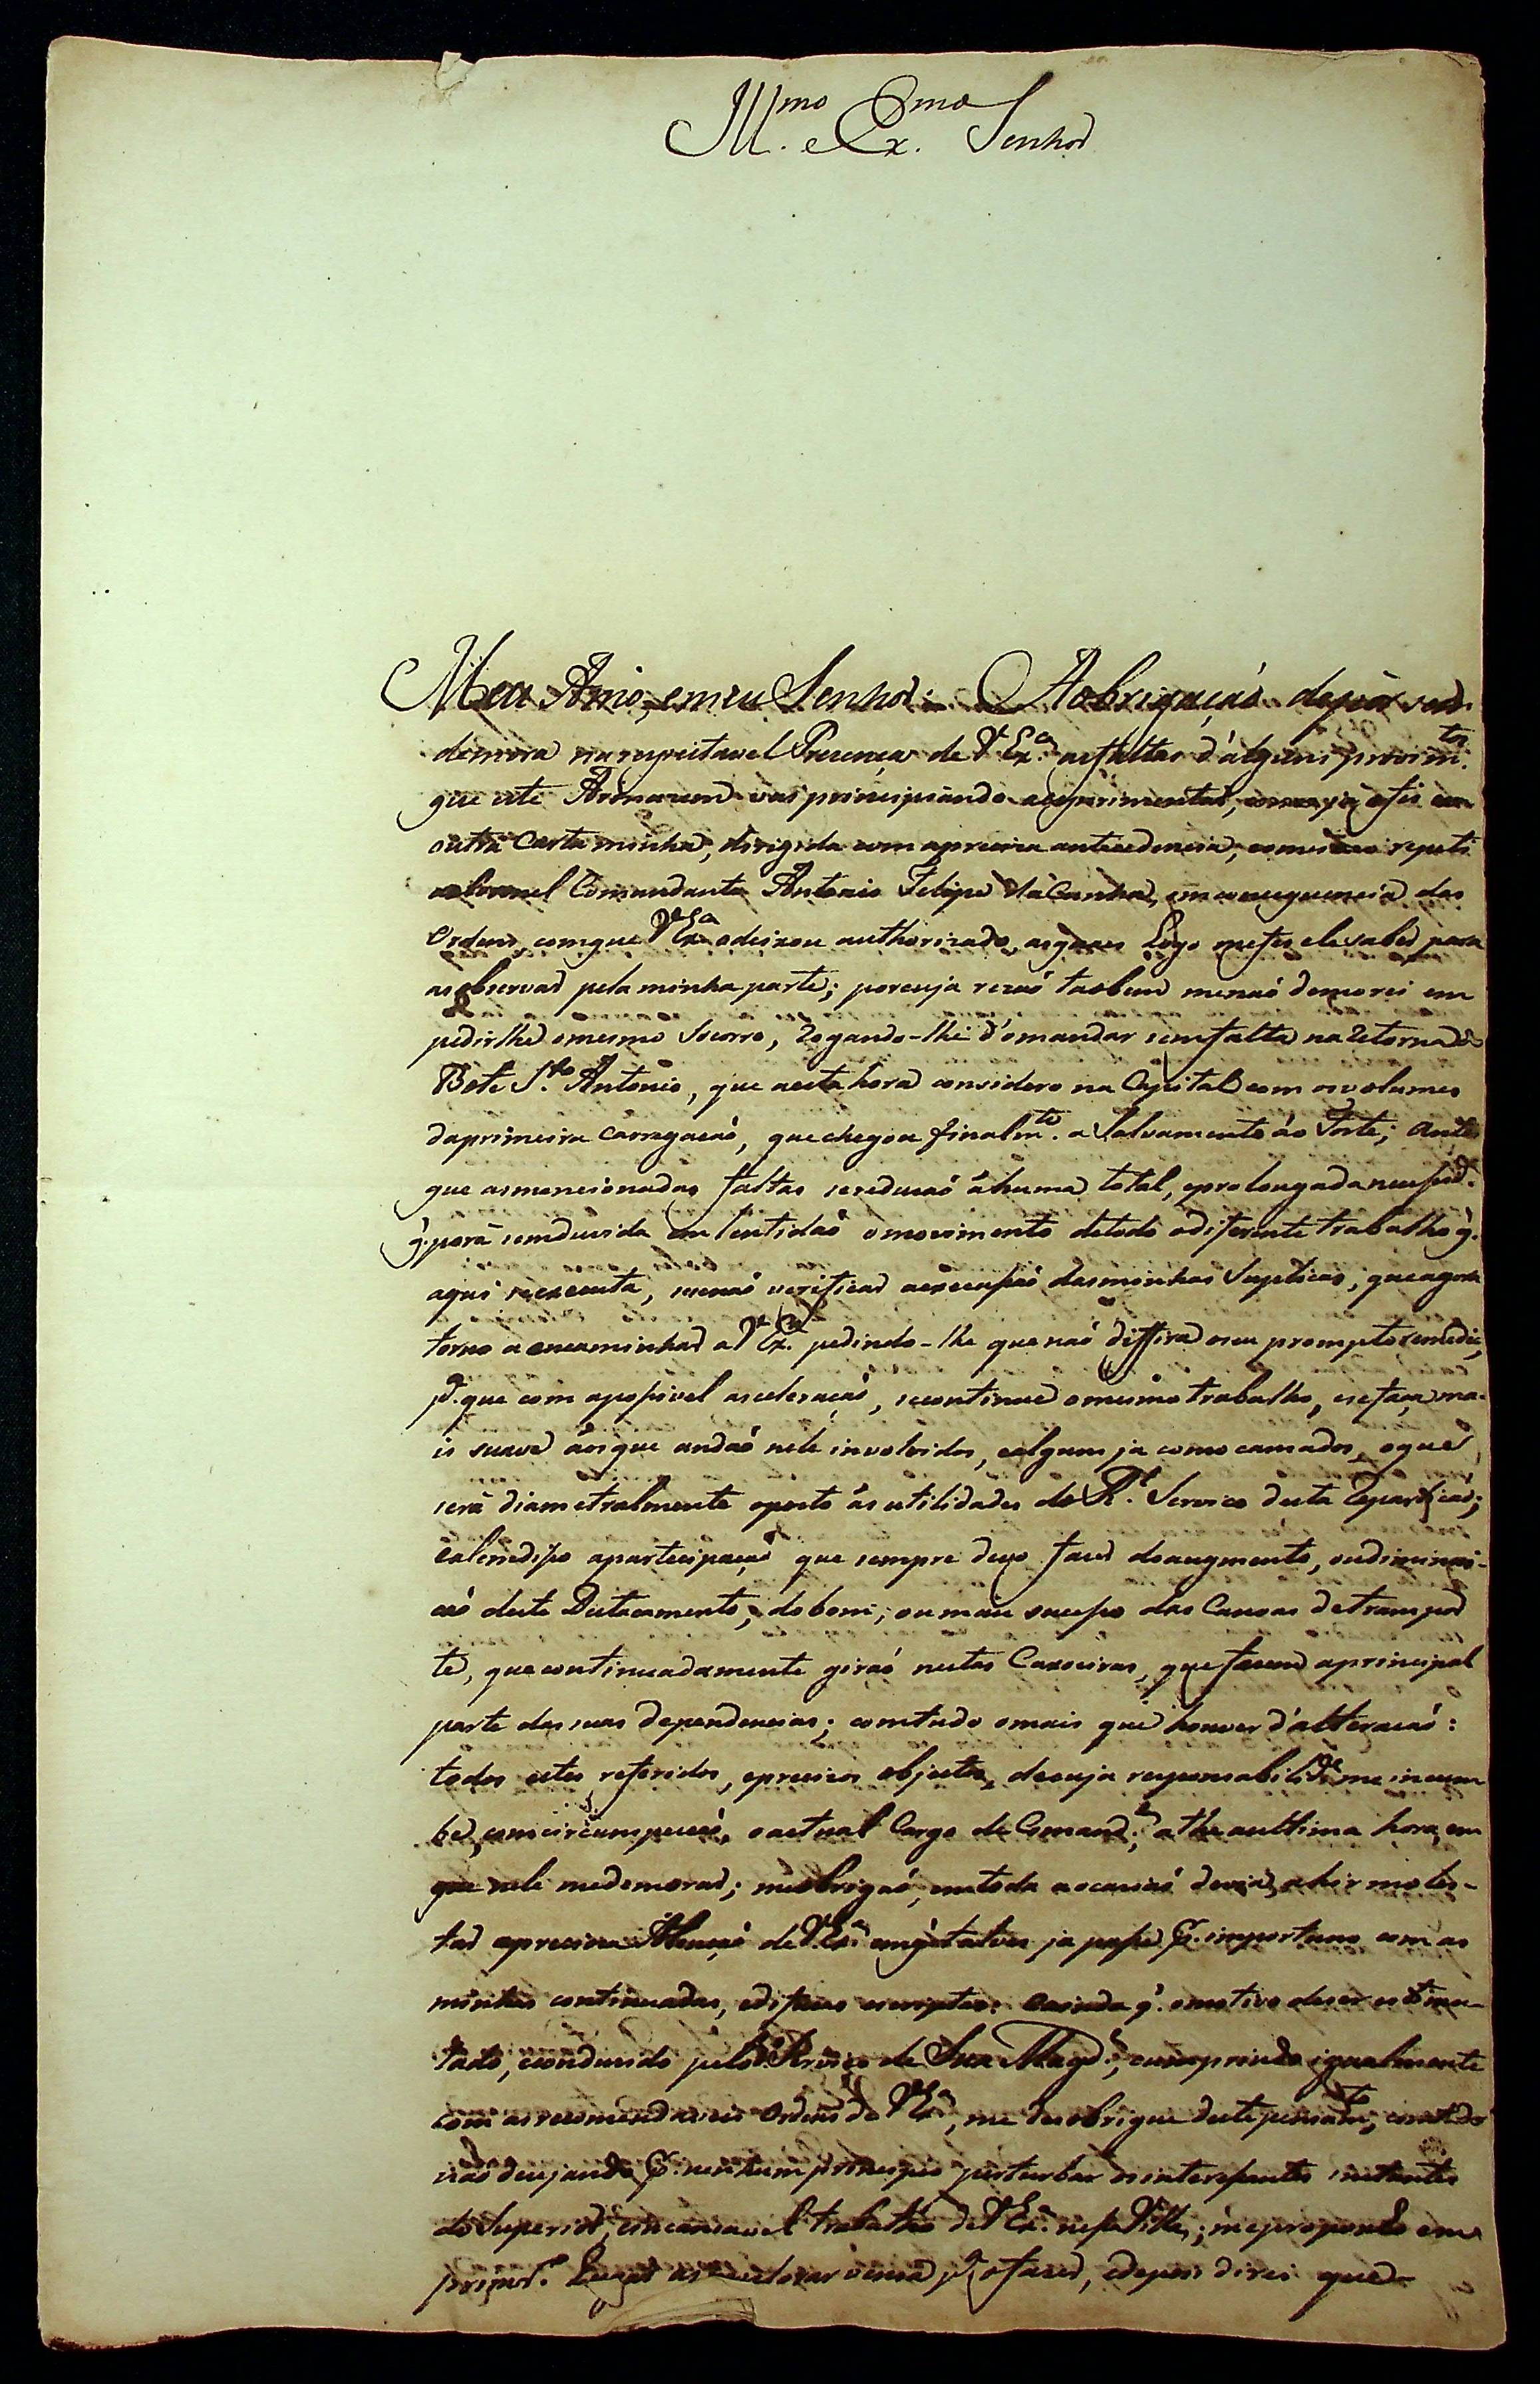 Ill.mo e Ex.mo Senhor
Meu Amo, emeu Senhor: Aobrigaçaõ depôr sem
demora na respeitavel Prezença de V.Ex.a asfaltas d'alguns provim.tos
que este Armazem vai principiando aexperimentar, como ja ofis em
outra Carta minha, dirigida com apreciza antecedencia, omesmo repeti
ao Coronel Comandante Antonio Felipe da Cunha, em consequencia das
Ordens, comque V.Ex.a odeixou authorizado, asquaes logo mefes ele saber para
as observar pela minha parte; porcuja rezaõ taobem menaõ demorei em
pedirlhe omesmo Socorro, rogando-lhe d'omandar semfalta na retorna do
Bote S.to Antonio, que aesta hora considero na Capital com osvolumes
daprimeira carregaçaõ, que chegou finalm.te a Salvamento áo Forte; antes
que asmencionadas faltas sereduzaõ áhuma total, eprolongada necessid.e
q. porá semduvida em lentidaõ omovimento detodo odiferente trabalho q.
aqui seexecuta, senaõ verificar aexecussaõ dasminhas Suplicas, queagora
torno a encaminhar a V.Ex.a pedindo-lhe que naõ diffira oseu prompto remedio,
p.a que com apossivel aceleraçaõ, secontinue omesmo trabalho, esefaça ma-
is suave áosque andaõ nele involvidos, ealguns ja como cansados, oque
será diametralmente oposto ás utilidades do R.l Serviço desta Repartiçaõ;
ealemdisso apartecipaçaõ que sempre devo fazer doaugmento, oudiminui-
çaõ deste Destacamento, dobom, oumau sucesso das Canoas detranspor
te, quecontinuadamente giraõ nestas Caxoeiras, quefazem aprincipal
parte das suas dependencias; comtudo omais que houver d'alteraçaõ:
todos estes referidos, eprecizos objectos, decuja responsabilid.e me incum
be, comcircumspecçaõ, oactual Cargo de Comand.e, athe aultima hora, em
que nele medemorar; meobrigaõ, emtoda aocaziaõ devida, ahir moles-
tar apreciza Atençaõ de V.Ex.a emq. talves ja passe p.r importuno com as
minhas continuadas, edifuzas escriptas: eainda q. omotivo deser estimu-
lado, econduzido pelo Serviço de Sua Mag.e, cumprindo igualmente
com asrecomendaveis Ordens de V.Ex.a, me desobrigue deste pensam.to, comtudo
naõ dezejando p.r nenhum principio perturbar osinteressantes instantes
do Superior, eincansavel trabalho de V.Ex.a nessa Villa; me proponho em
prim.ro Lugar aimplorar venia p.a ofazer, edepois direi que